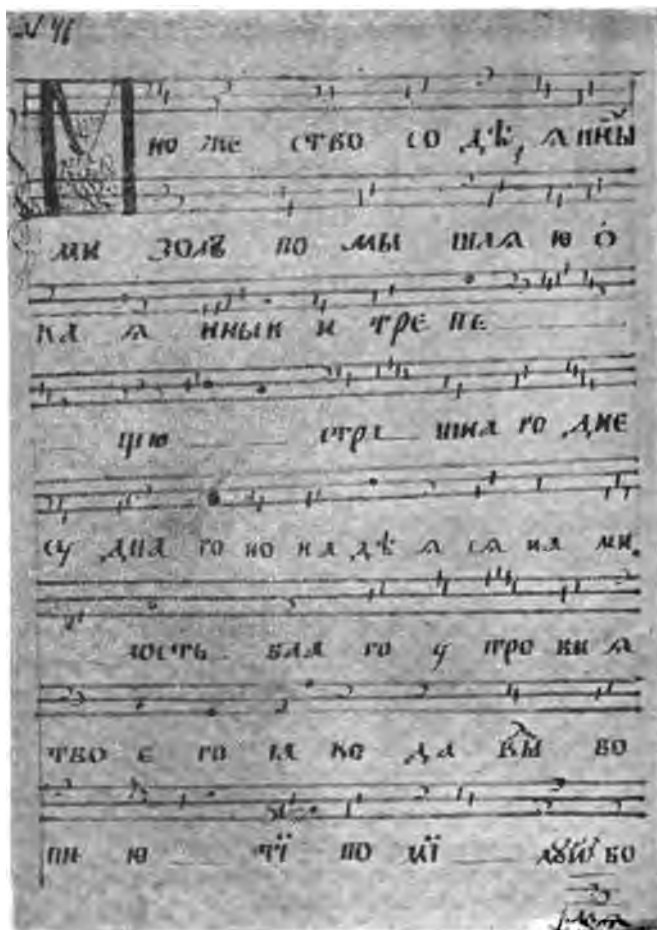 № 46
М но же ство со дѣ ѧ нны
ми золъ по мы шлѧ ю о
ка ѧ нныи и тре пе
щю стра шна го дне
су дна го но на дѣ ѧ сѧ на ми
лость бла го у
тво е го ꙗ ко да
пи ю ти по